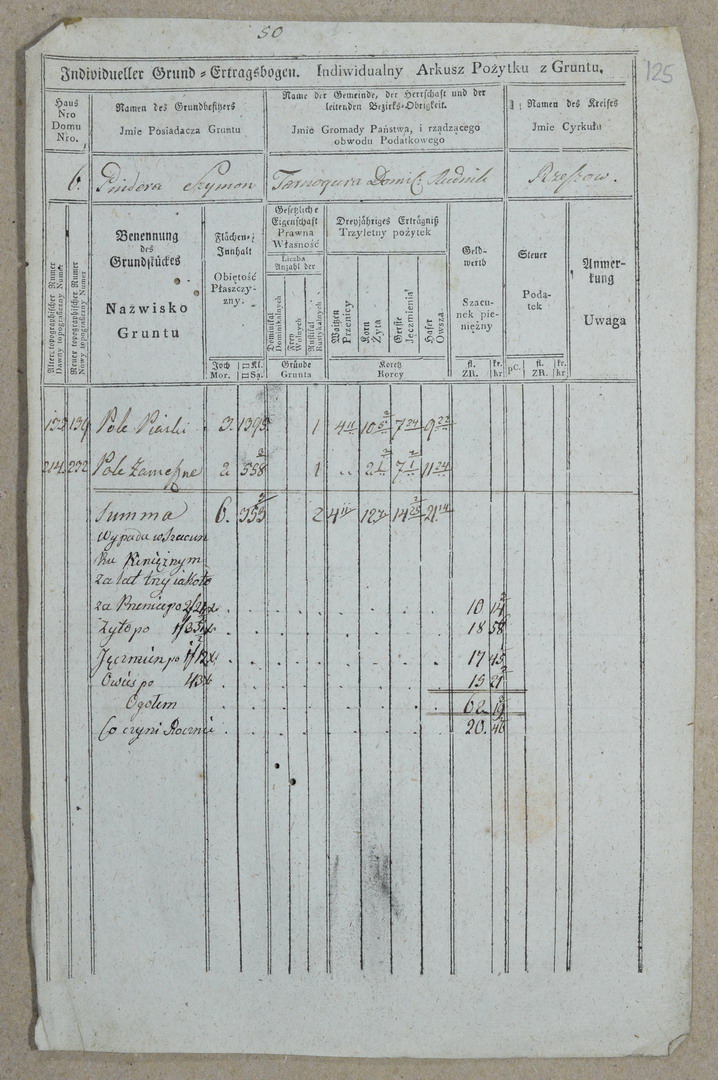 50
125
Individueller Grund = Ertragsbogen. Indiwidualny Arkusz Pożytku z Gruntu.
Haus Nro Domu Nro.
Namen des Grundbesitzers
Jmie Posiadacza Gruntu
Name der Gemeinde, der Herrschaft und der
leitenden Bezirks-Obrigkeit.
Jmie Gromady Państwa, i rządzącego
obwodu Podatkowego
Namen des Kreises
Jmie Cyrkułu
6. Pindera Szymon Tarnogura Rudnik Rzeszow.
Alter topographischer Numer
Dawny topograficzny Numer
Neuer topographischer Numer
Nowy topograficzny Numer
Benennung
des
Grundstückes
Nazwisko
Gruntu
Flächen-
Innhalt
Obiętość
Płaszczy-
zny.
Joch □Kl.
Mor. □Są.
Gesetzliche
Eigenschaft
Prawna
Własność
Liczba
Anzahl der
Dominikal
Dominikalnych
Freyen
Wolnych
Rustikal
Rustykalnych
Gründe
Grunta
Dreyjähriges Erträgniß
Trzyletny pożytek
Waitzen
Przenicy
Korn
Żyta
Gerste
Jęczmienia
Hafer
Owsza.
Koretz
Korcy
Geld-
werth
Szacu-
nek pie-
niężny
fl. kr.
ZR. kr
Steuer
Poda-
tek
pC. fl. kr.
ZR. kr
Anmer-
kung
Uwaga
139 Pole Piaski 3. 1395 1
232 Pole 2 558 1
Summa 6. 2
wypada w Szacun
ku Pieniężnym
za lat trzy iakoto
10 14
Żyto po 18 58
Jęczmień po 17 45
Owies po 15 21
Ogółem 62 19
Co czyni Rocznie 20. 46